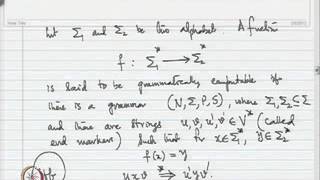 Let Σ₁ and Σ₂ be two alphabets. A function
f : Σ₁* ⟶ Σ₂*
is said to be grammatically computable if
there is a grammar (N, Σ, P, S), where Σ₁, Σ₂ ⊆ Σ
and there are strings u, v, u', v' ∈ V* (called
end markers) such that for x ∈ Σ₁*, y ∈ Σ₂*
f(x) = y
iff u x v ⇒* u' y v'.